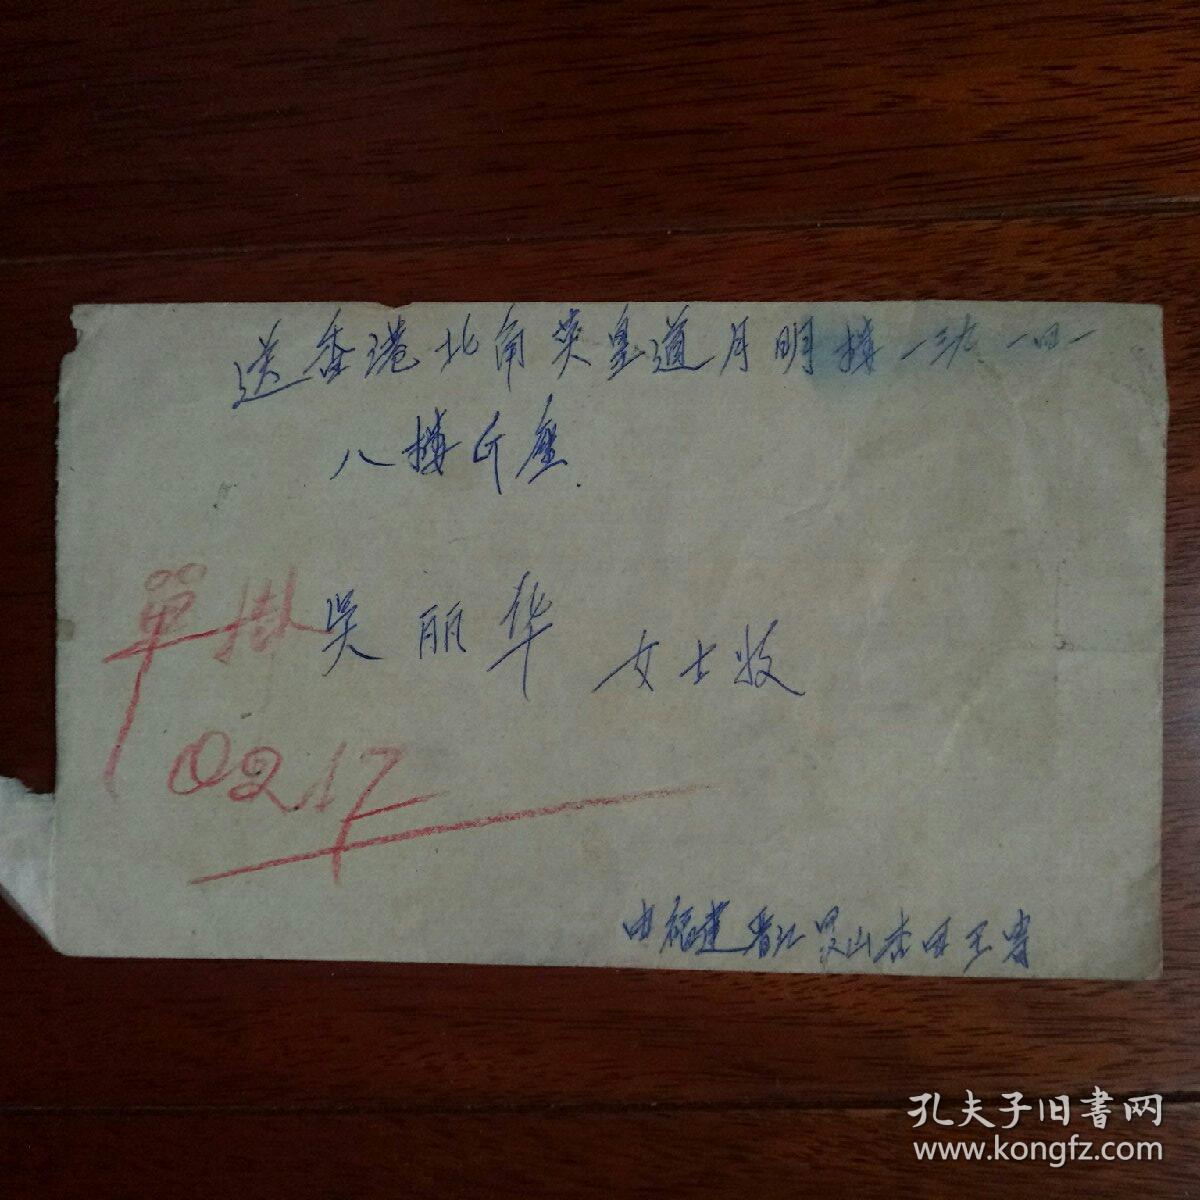 送香港北角英皇道月明楼一三九 一四一
八楼斤座
單掛
吴丽华 女士收
0217
由福建晋江灵山杏田王寄
孔夫子旧書网
www.kongfz.com